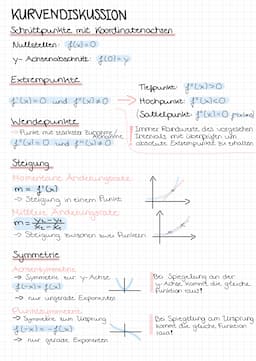 KURVENDISKUSSION
Schnittpunkte mit Koordinatenachsen
Nullstellen: f(x)=0
y-Achsenabschnitt: f(0)=y
Extrempunkte
f'(x)=0 und f''(x)≠0
Tiefpunkt: f''(x)>0
Hochpunkt: f''(x)<0
(Sattelpunkt: f''(x)=0
Wendepunkte
→ Punkt mit stärkster Zunahme/
Abnahme
f''(x)=0 und f'''(x)≠0
Immer Randwerte des vorgegebenen
Intervalls mit überprüfen um
absolute Extrempunkte zu erhalten
Steigung
Momentane Änderungsrate
m = f'(x)
→ Steigung in einem Punkt
Mittlere Änderungsrate
m = y₂-y₁
x₂-x₁
→ Steigung zwischen zwei Punkten
Symmetrie
Achsensymmetrie
→ Symmetrie zur y-Achse
f(-x)=f(x)
→ nur ungerade Exponenten
Bei Spiegelung an der
y-Achse kommt die gleiche
Funktion raus!
Punktsymmetrie
→ Symmetrie zum Ursprung
f(-x)=-f(x)
→ nur gerade Exponenten
Bei Spiegelung am Ursprung
kommt die gleiche Funktion
raus!